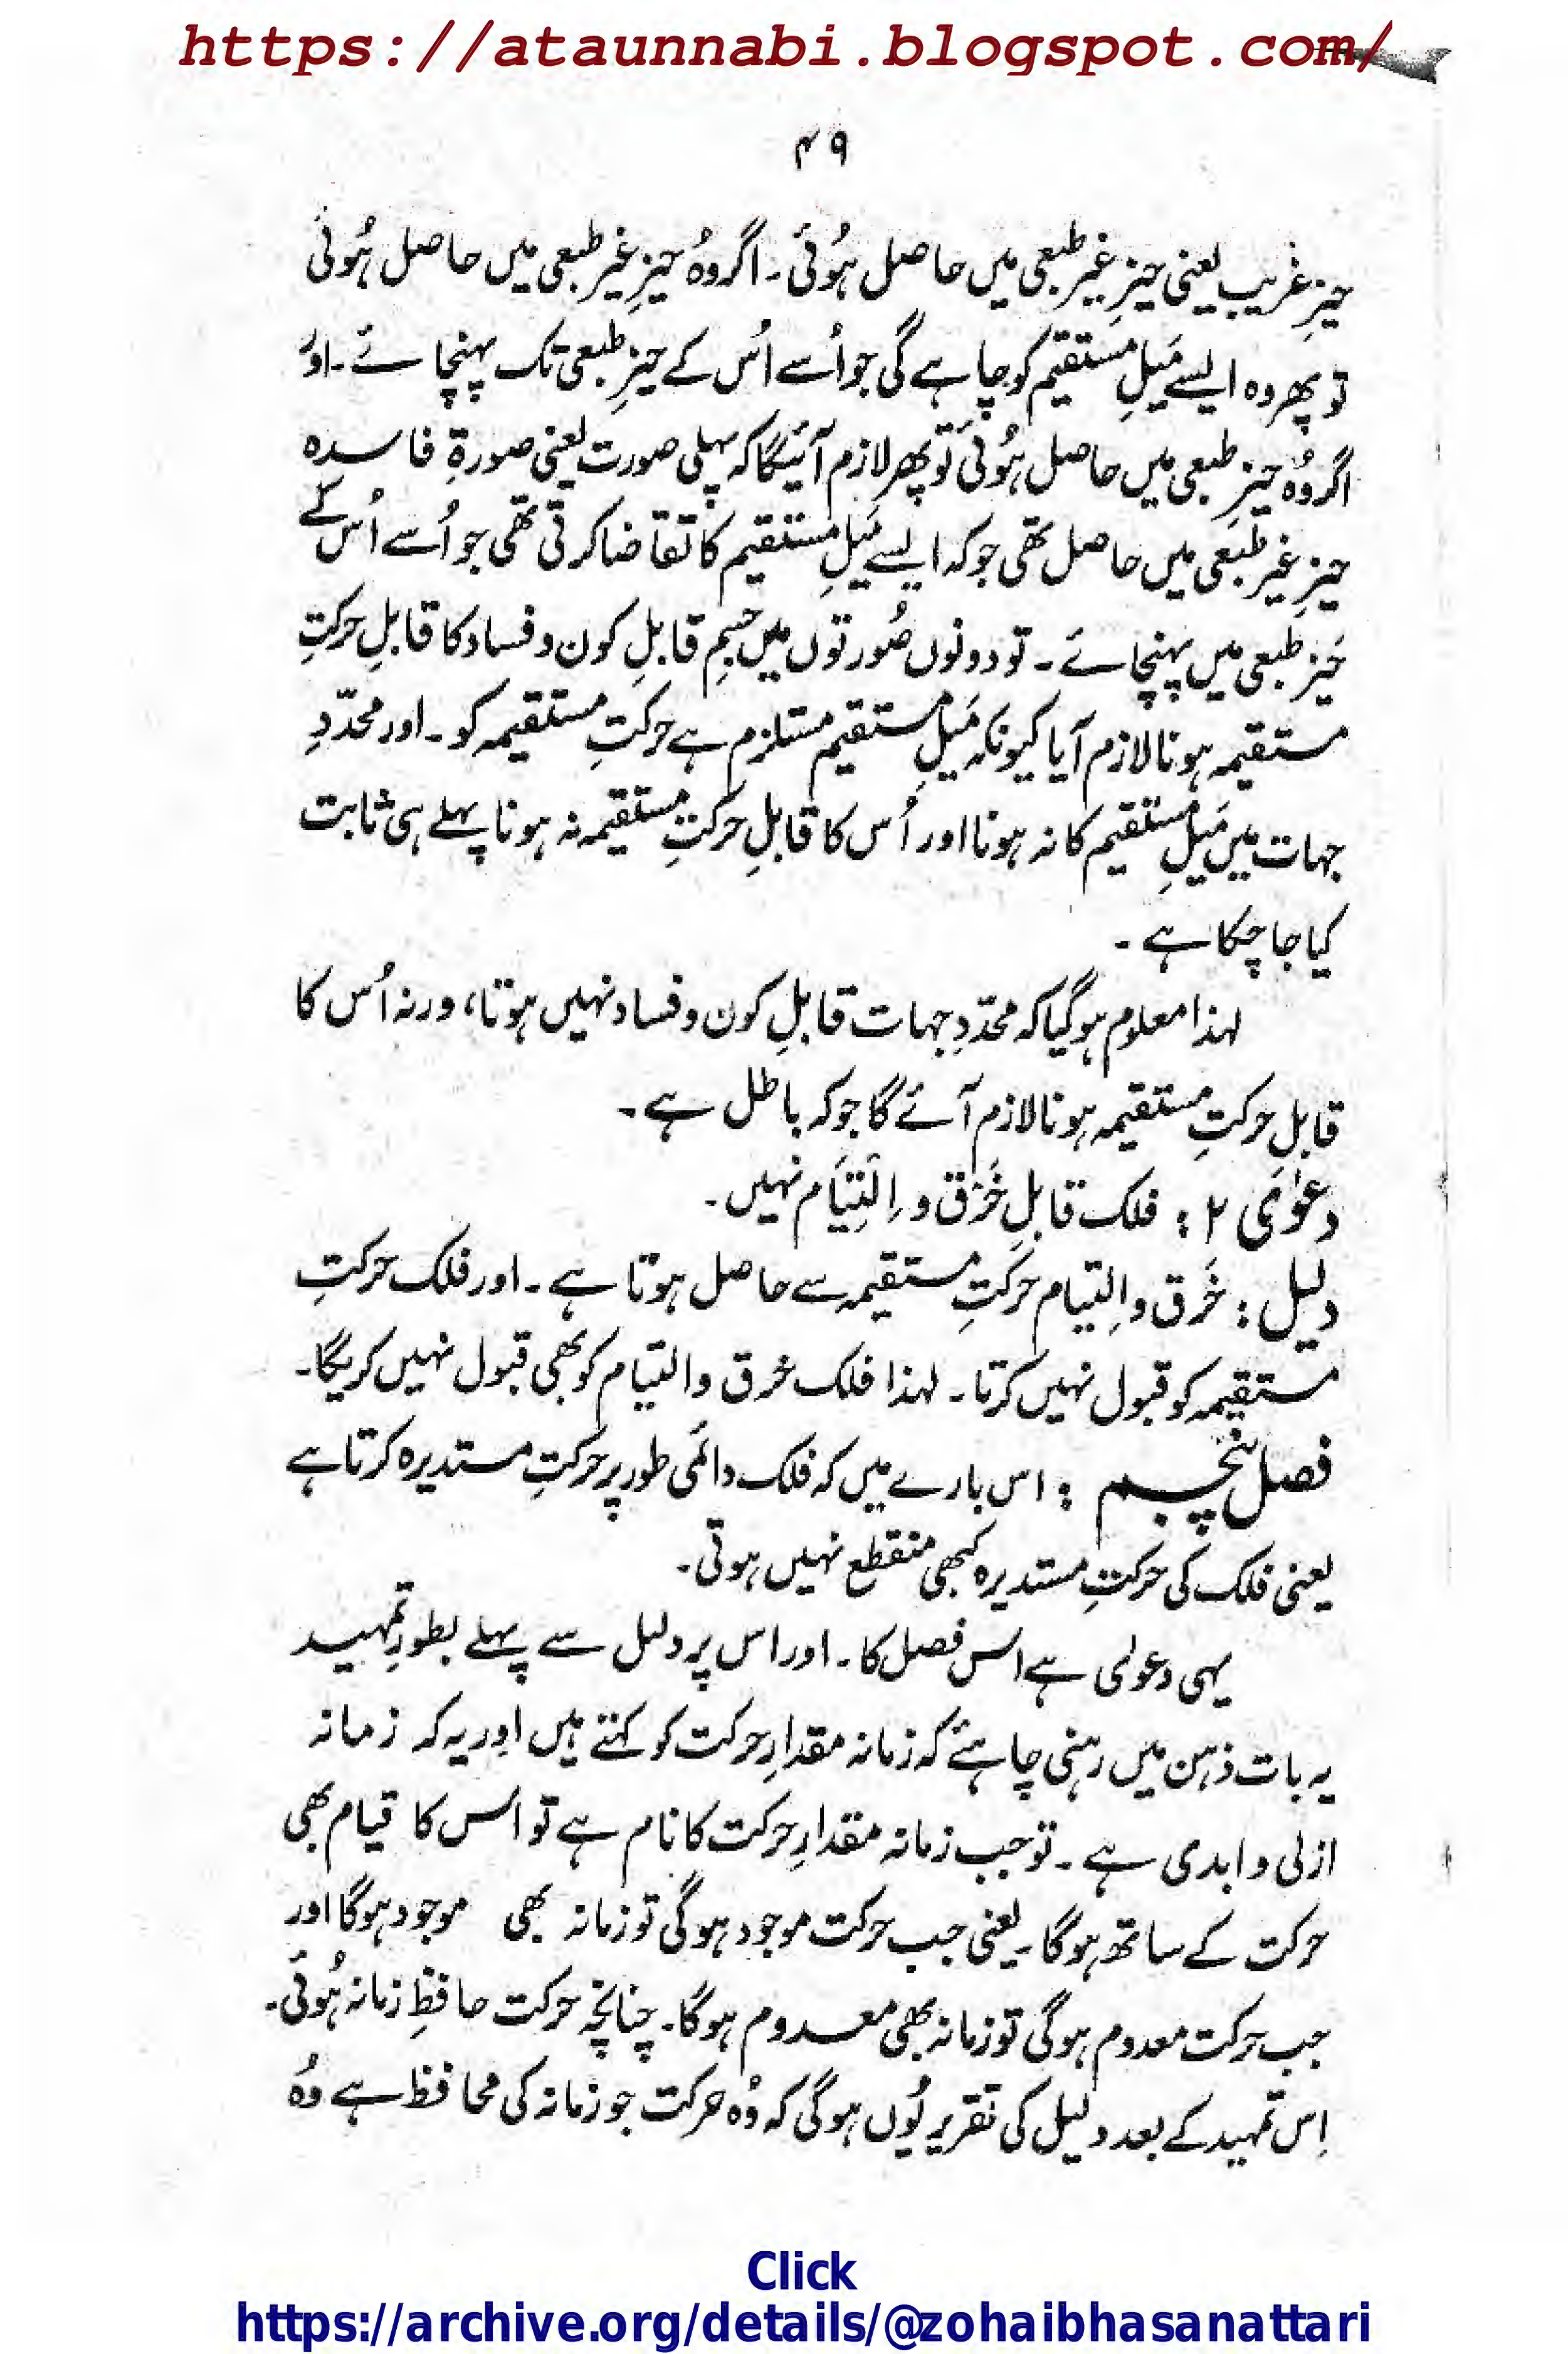 https://ataunnabi.blogspot.com/
۴۹
حیزِ غریب یعنی حیزِ غیر طبعی میں حاصل ہُوئی۔ اگر وہُ حیزِ غیر طبعی میں حاصل ہُوئی
تو پھر وہ ایسے مَیلِ مستقیم کو چاہے گی جو اُسے اُس کے حیزِ طبعی تک پہنچائے۔ اور
اگر وُہ حیزِ طبعی میں حاصل ہُوئی تو پھر لازم آئیگا کہ پہلی صورت یعنی صورۃِ فاسدہ
حیزِ غیر طبعی میں حاصل تھی جو کہ ایسے مَیلِ مستقیم کا تقاضا کرتی تھی جو اُسے اُس کے
حَیزِ طبعی میں پہنچائے۔ تو دونوں صُورتوں میں جسمِ قابلِ کون و فساد کا قابلِ حرکتِ
مستقیمہ ہونا لازم آیا کیونکہ مَیلِ مستقیم مستلزم ہے حرکتِ مستقیمہ کو۔ اور محدّدِ
جہات میں مَیلِ مستقیم کا نہ ہونا اور اُس کا قابلِ حرکتِ مستقیمہ نہ ہونا پہلے ہی ثابت
کیا جا چکا ہے۔
لہذا معلوم ہوگیا کہ محدّدِ جہات قابلِ کون و فساد نہیں ہوتا، ورنہ اُس کا
قابلِ حرکتِ مستقیمہ ہونا لازم آئے گا جو کہ باطل ہے۔
دعوٰی ۲ : فلک قابلِ خَرْق و اِلْتِیَام نہیں۔
دلیل : خَرق و اِلتیام حرکتِ مستقیمہ سے حاصل ہوتا ہے۔ اور فلک حرکتِ
مستقیمہ کو قبول نہیں کرتا۔ لہذا فلک خرق و التیام کو بھی قبول نہیں کریگا۔
فصل پنجم : اس بارے میں کہ فلک دائمی طور پر حرکتِ مستدیرہ کرتا ہے
یعنی فلک کی حرکتِ مستدیرہ کبھی منقطع نہیں ہوتی۔
یہی دعوٰی ہے اس فصل کا۔ اور اس پر دلیل سے پہلے بطورِ تمہید
یہ بات ذہن میں رہنی چاہئے کہ زمانہ مقدارِ حرکت کو کہتے ہیں اور یہ کہ زمانہ
ازلی و ابدی ہے۔ تو جب زمانہ مقدارِ حرکت کا نام ہے تو اس کا قیام بھی
حرکت کے ساتھ ہوگا۔ یعنی جب حرکت موجود ہوگی تو زمانہ بھی موجود ہوگا اور
جب حرکت معدوم ہوگی تو زمانہ بھی معدوم ہوگا۔ چنانچہ حرکت حافظِ زمانہ ہُوئی۔
اِس تمہید کے بعد دلیل کی تقریر یُوں ہوگی کہ وُہ حرکت جو زمانہ کی محافظ ہے وُہ
Click
https://archive.org/details/@zohaibhasanattari